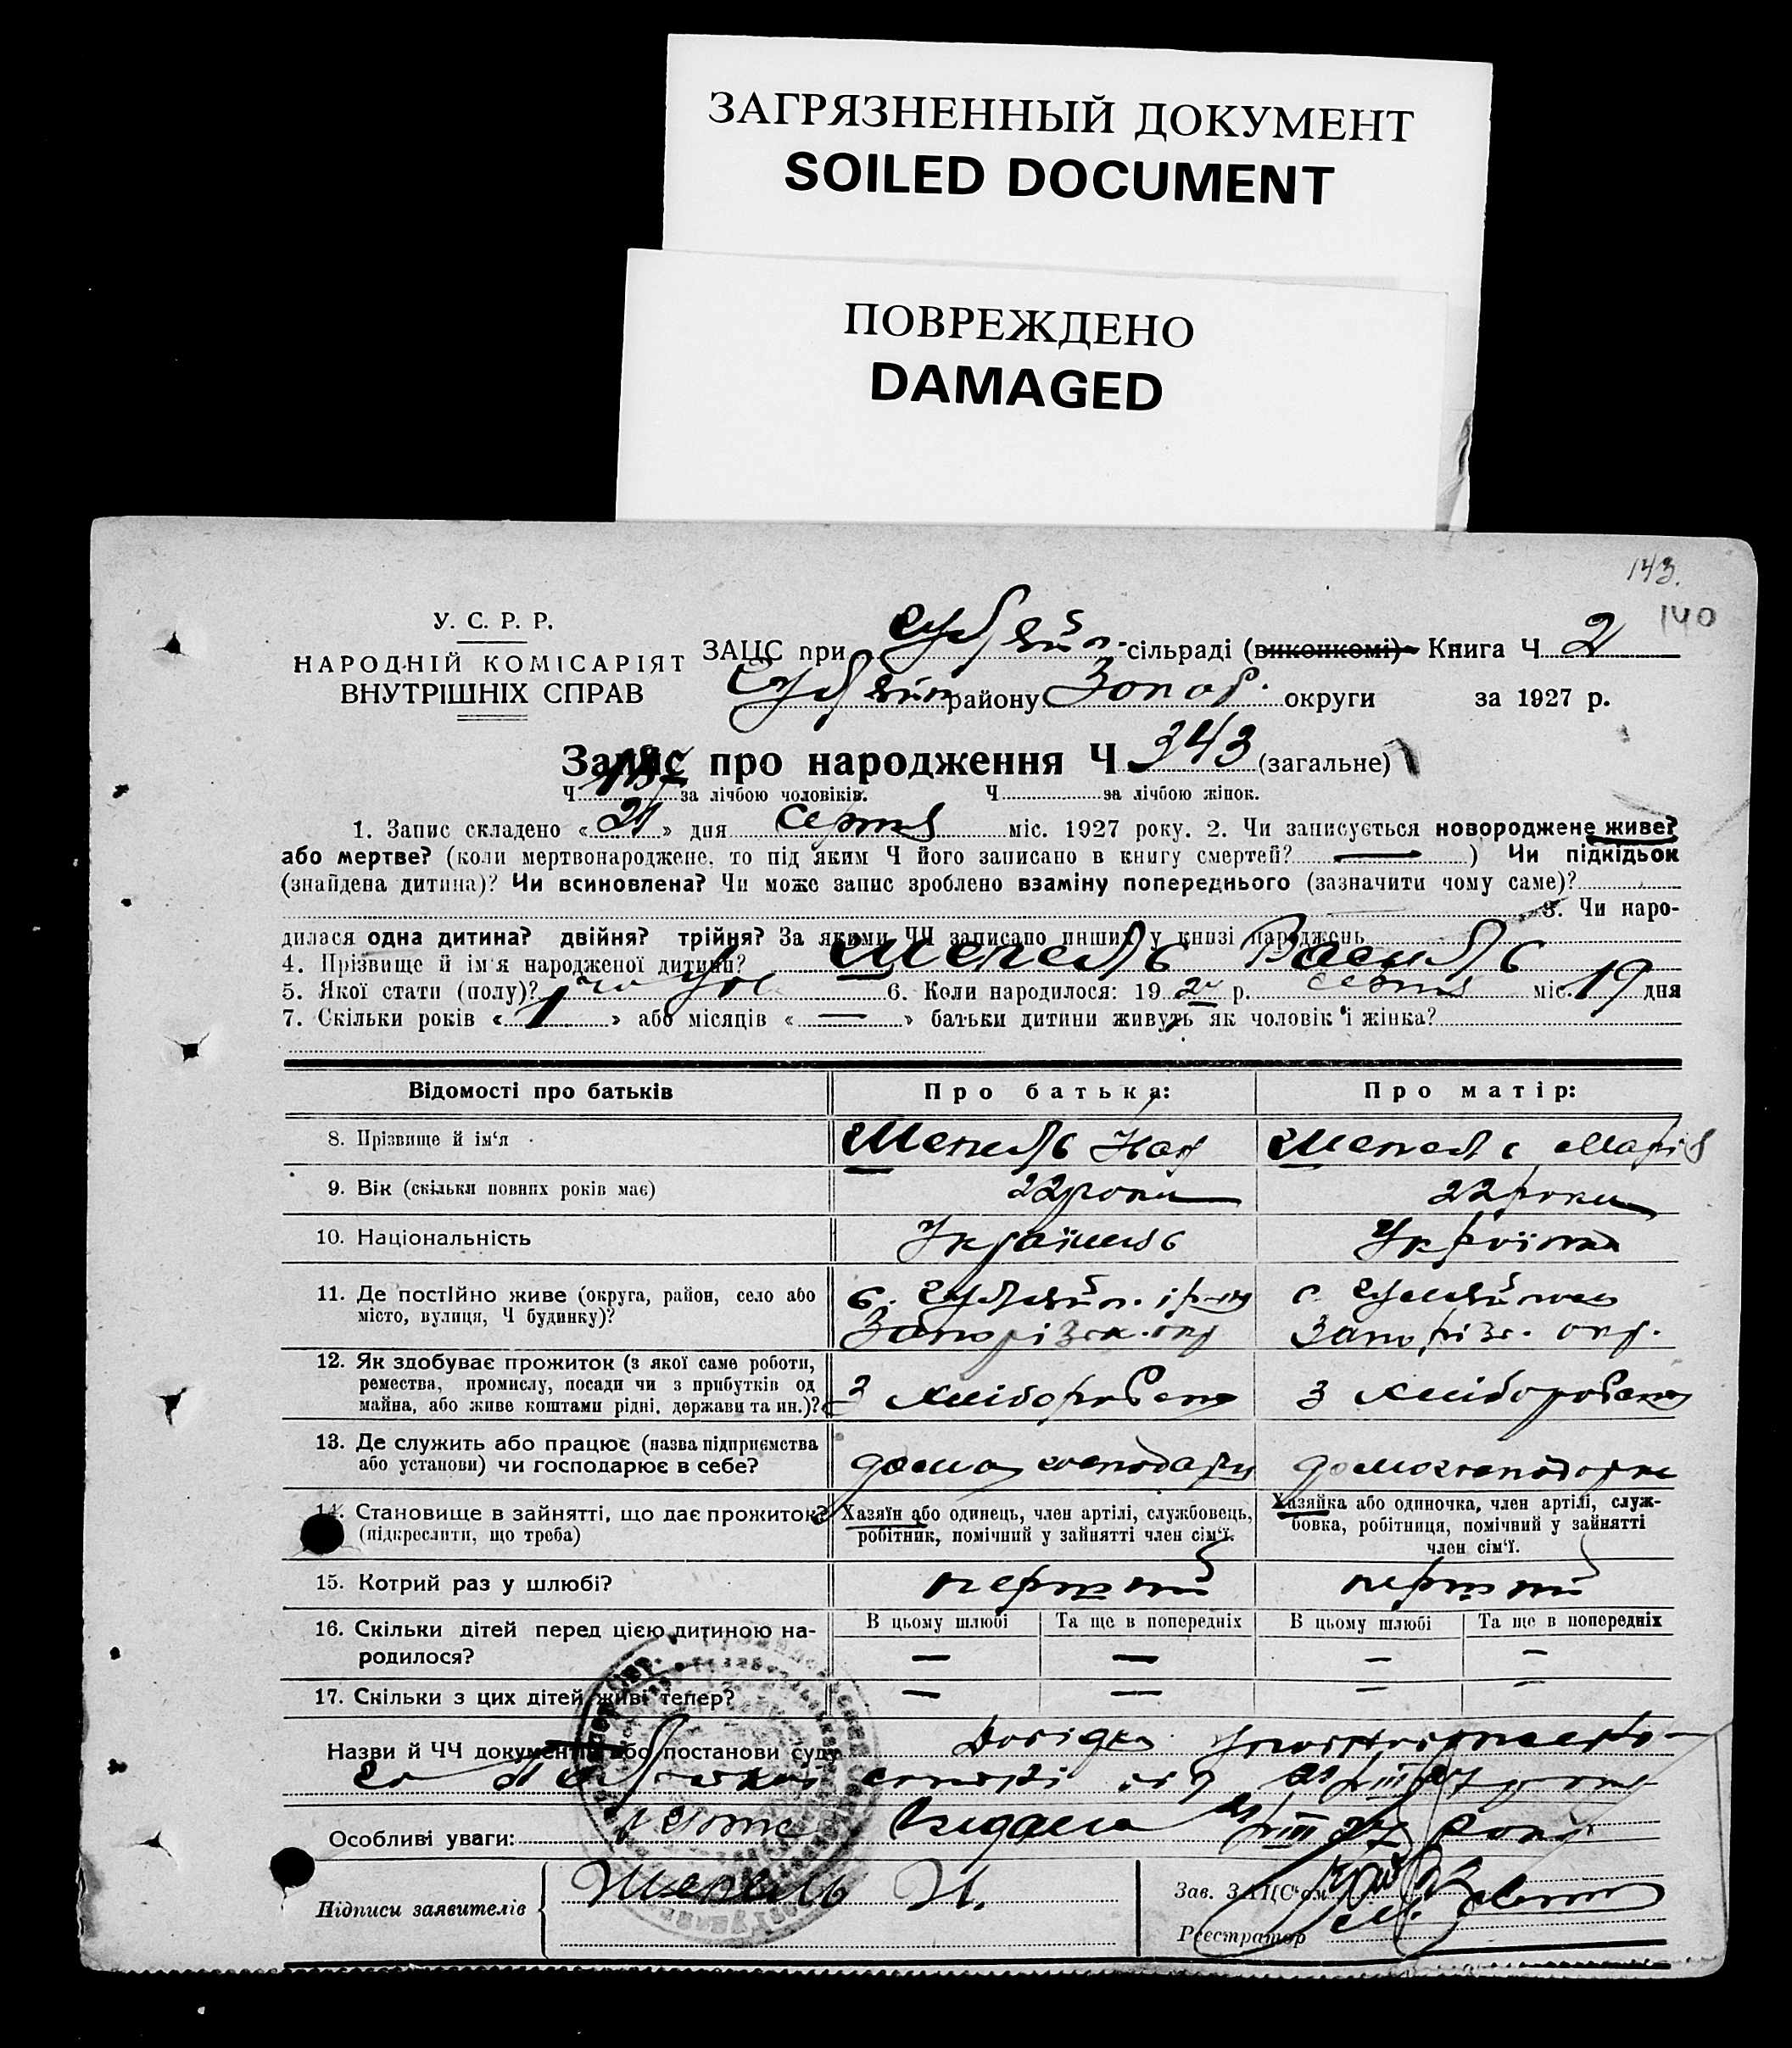 ЗАГРЯЗНЕННЫЙ ДОКУМЕНТ
SOILED DOCUMENT
ПОВРЕЖДЕНО
DAMAGED
143.
140
У. С. Р. Р.
НАРОДНІЙ КОМІСАРІЯТ
ВНУТРІШНІХ СПРАВ
ЗАЦС при сільраді (виконкомі) Книга Ч 2
району Запор. округи за 1927 р.
Запис про народження Ч 343 (загальне)
Ч за лічбою чоловіків. Ч за лічбою жінок.
1. Запис складено « 21 » дня серпня міс. 1927 року. 2. Чи записується новороджене живе?
або мертве? (коли мертвонароджене, то під яким Ч його записано в книгу смертей? — ) Чи підкідьок
(знайдена дитина)? Чи всиновлена? Чи може запис зроблено взаміну попереднього (зазначити чому саме)?
3. Чи наро-
дилася одна дитина? двійня? трійня? За якими ЧЧ записано инших у книзі народжень
4. Прізвище й ім'я народженої дитини? Шепель Василь
5. Якої стати (полу)? 6. Коли народилося: 19 27 р. серпня міс. 19 дня
7. Скільки років « 1 » або місяців « — » батьки дитини живуть як чоловік і жінка?
Відомості про батьків Про батька: Про матір:
8. Прізвище й ім'я Шепель Іван Шепель Марія
9. Вік (скільки повних років має) 22 роки 22 роки
10. Національність Українець Українка
11. Де постійно живе (округа, район, село або
місто, вулиця, Ч будинку)? с. Запорізьк. окр с. Запоріз. окр.
12. Як здобуває прожиток (з якої саме роботи,
ремества, промислу, посади чи з прибутків од
майна, або живе коштами рідні, держави та ин.)? З хліборобства З хліборобства
13. Де служить або працює (назва підприємства
або установи) чи господарює в себе? дома господарює дома господарює
14. Становище в зайнятті, що дає прожиток?
(підкреслити, що треба)
Хазяїн або одинець, член артілі, службовець,
робітник, помічний у зайнятті член сім'ї.
Хазяйка або одиночка, член артілі, служ-
бовка, робітниця, помічний у зайнятті
член сім'ї.
15. Котрий раз у шлюбі? перший перший
16. Скільки дітей перед цією дитиною на-
родилося?
В цьому шлюбі Та ще в попередніх В цьому шлюбі Та ще в попередніх
— — — —
17. Скільки з цих дітей живі тепер? — — — —
Назви й ЧЧ документів або постанови суду Довідка
від 21/VIII 27 року
Особливі уваги: Видана 21/VIII 27 року
Підписи заявителів Шепель И.
Зав. ЗАЦС'ом
Реєстратор